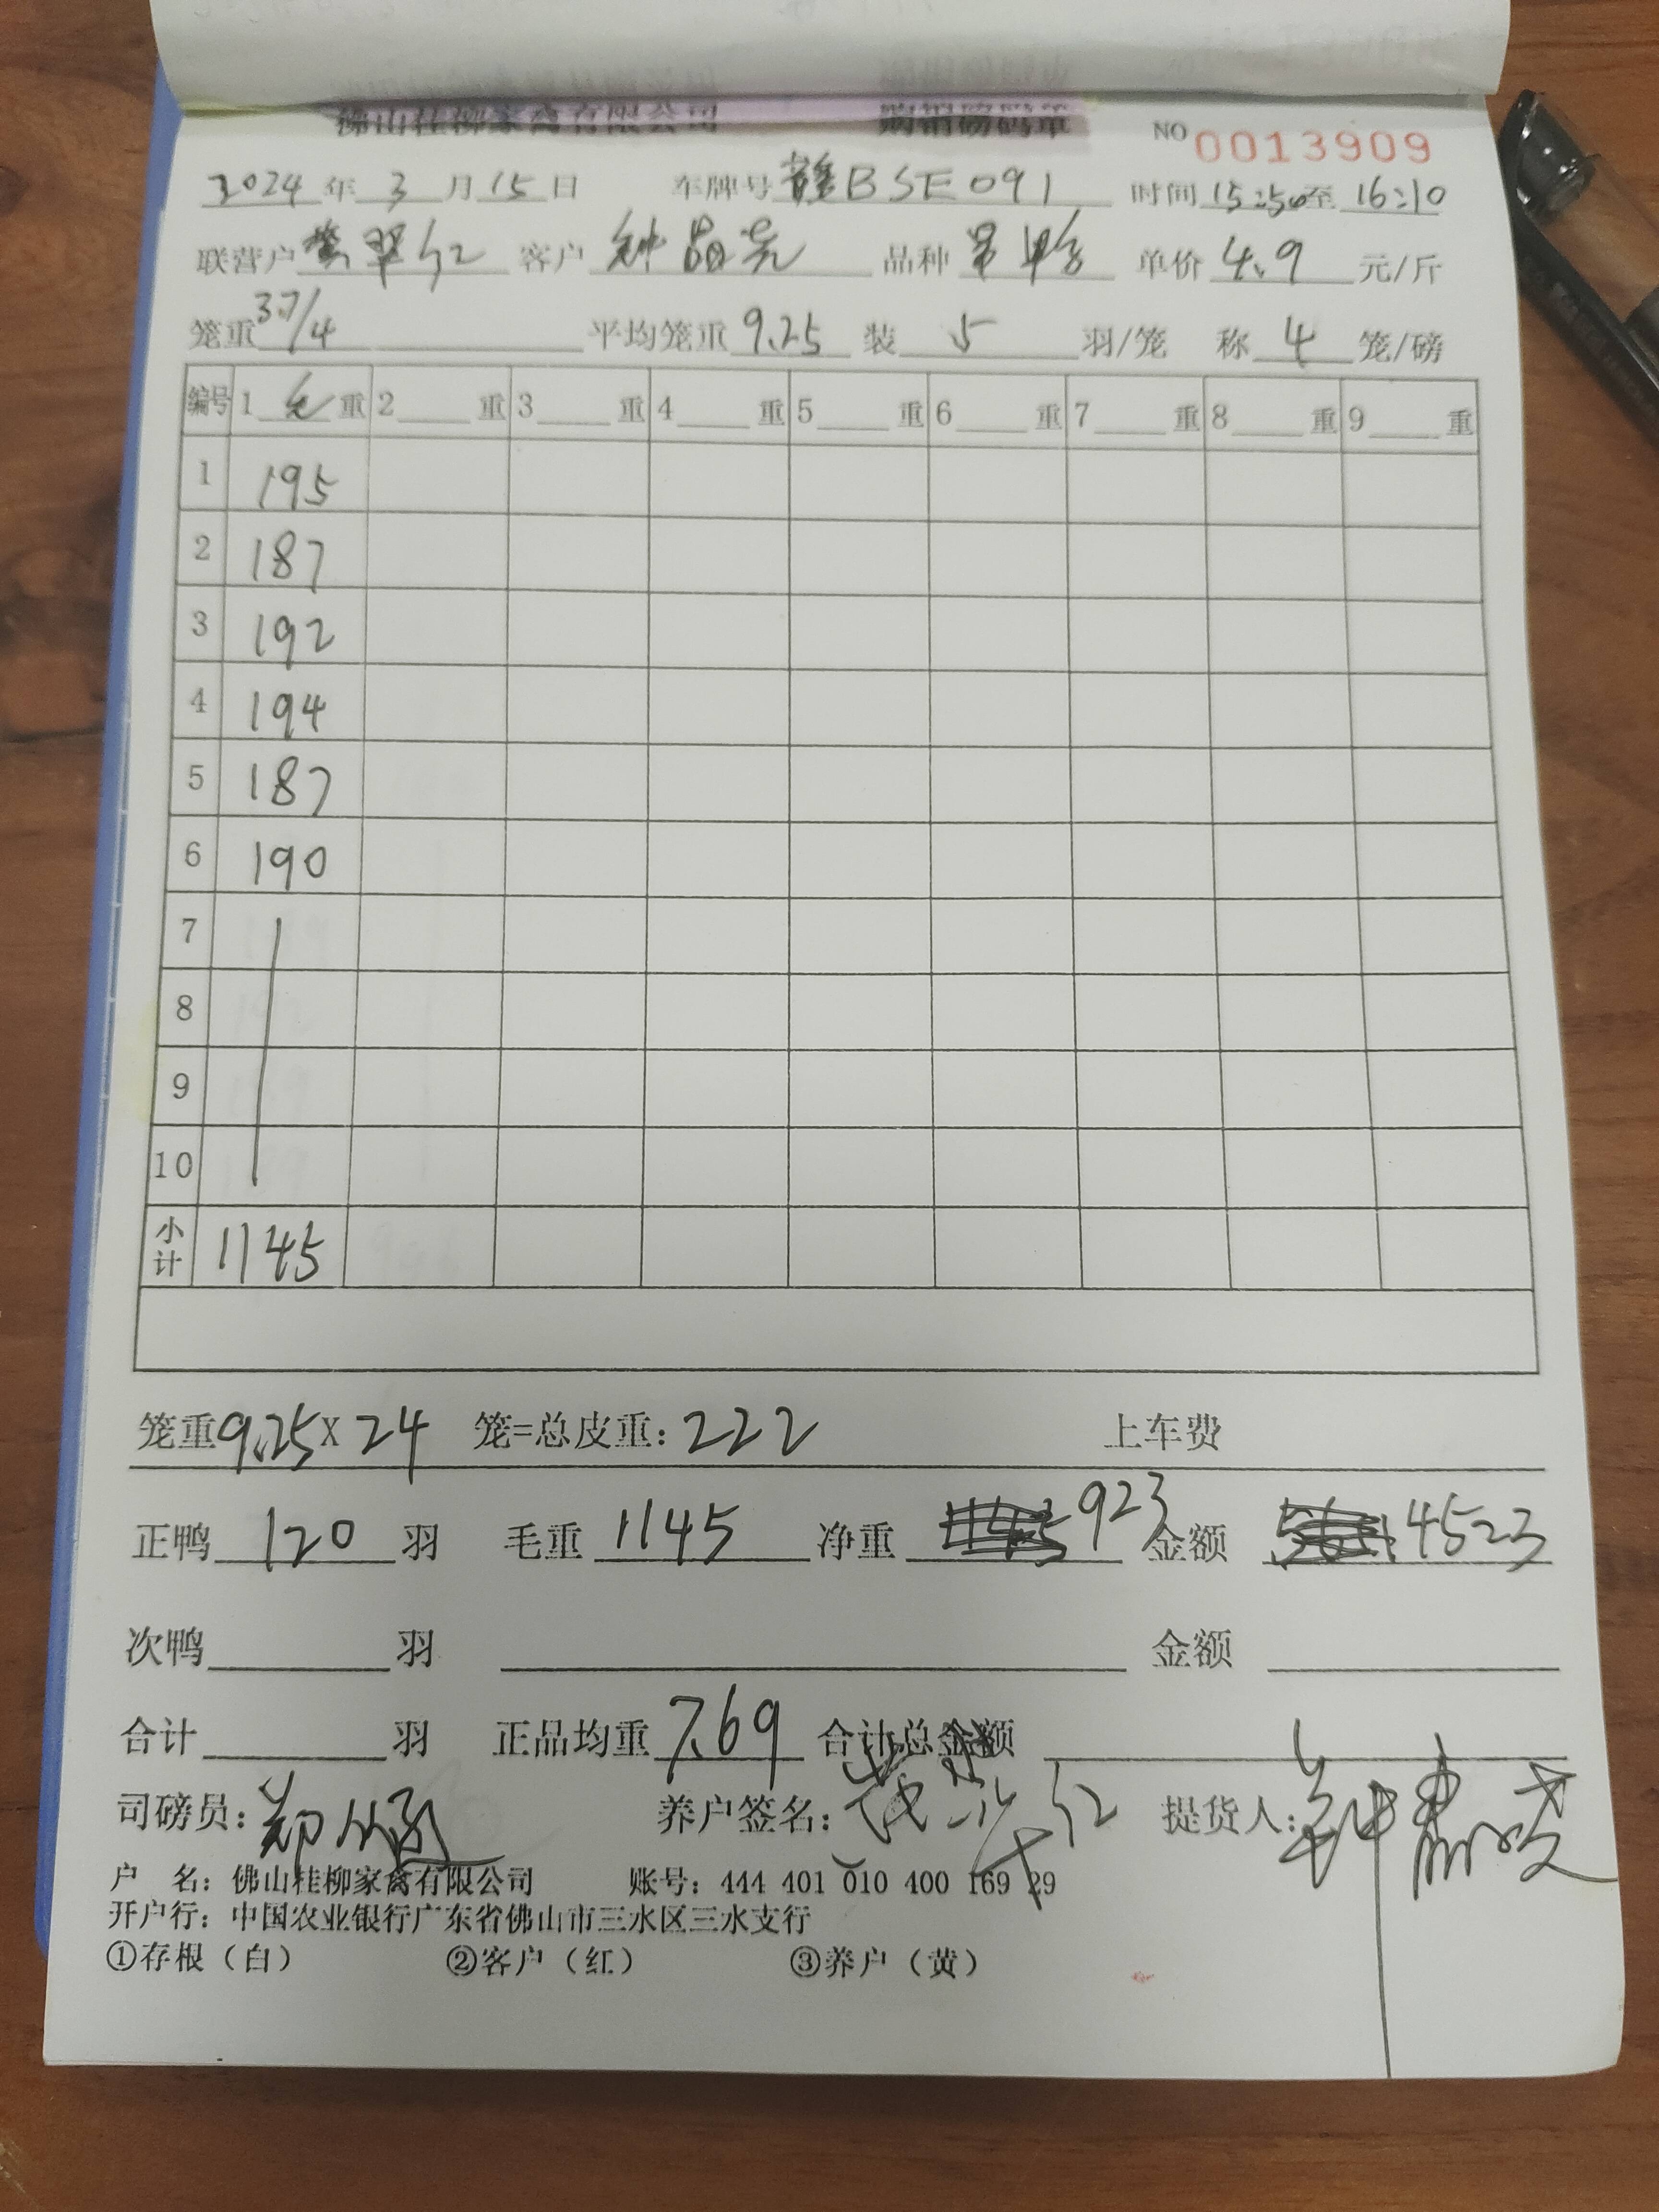 佛山桂柳家禽有限公司 购销磅码单 NO 0013909
2024 年 3 月 15 日 车牌号 赣BSE091 时间 15:50 至 16:10
联营户 翠红 客户 钟 亮 品种 单价 4.9 元/斤
笼重 37/4 平均笼重 9.25 装 5 羽/笼 称 4 笼/磅
编号 1 毛 重 2 重 3 重 4 重 5 重 6 重 7 重 8 重 9 重
1 195
2 187
3 192
4 194
5 187
6 190
7
8
9
10
小计 1145
笼重 9.25 X 24 笼=总皮重: 222 上车费
正鸭 120 羽 毛重 1145 净重 923 金额 4523
次鸭 羽 金额
合计 羽 正品均重 7.69 合计总金额
司磅员: 郑 养户签名: 红 提货人: 钟
户 名: 佛山桂柳家禽有限公司 账号: 444 401 010 400 169 29
开户行: 中国农业银行广东省佛山市三水区三水支行
①存根（白） ②客户（红） ③养户（黄）